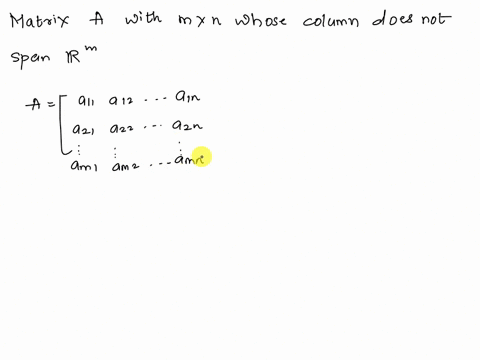 Matrix A with m×n whose column does not
span ℝᵐ
A = [ a11 a12 ... a1n
a21 a22 ... a2n
⋮ ⋮ ⋮
am1 am2 ... amn